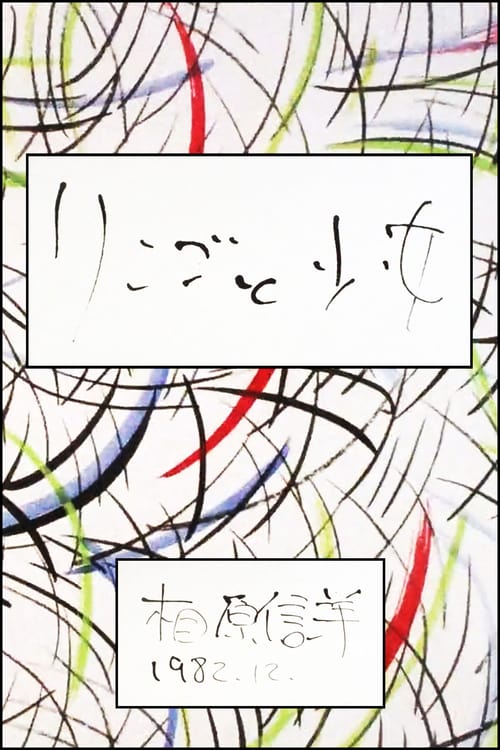 りんごと少女
相原信洋
1982.12.